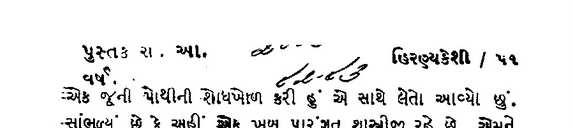 પુસ્તક રા. આ. હિરણ્યકેશી / ૫૧
વર્ષ.
એક જૂની પોથીની શોધખોળ કરી હું એ સાથે લેતા આવ્યો છું.
સાંભળ્યું છે કે અહીં એક ખૂબ પારંગત શાસ્ત્રીજી રહે છે. એમને